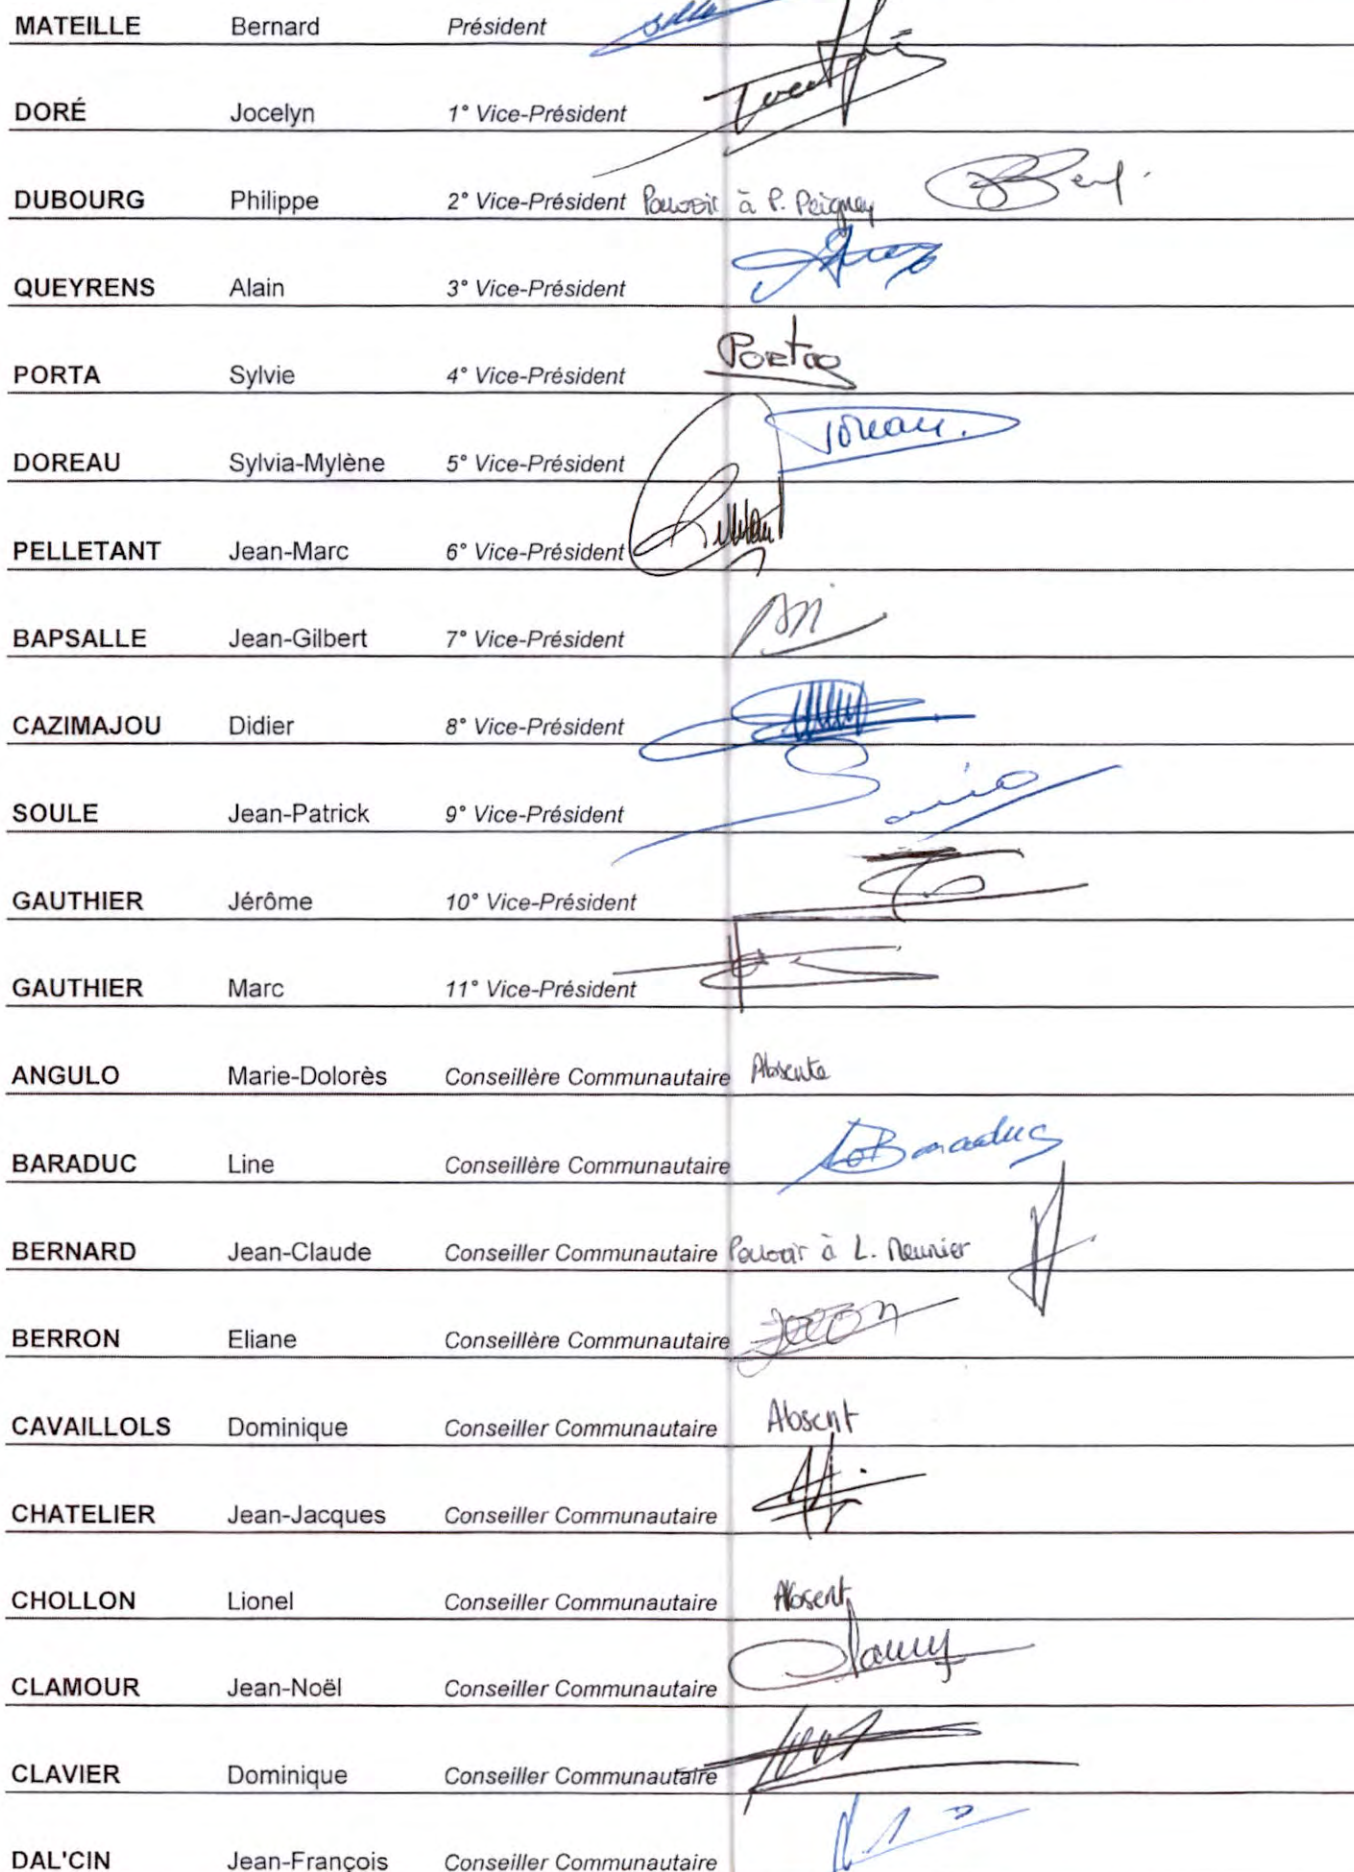 MATEILLE Bernard Président
DORÉ Jocelyn 1° Vice-Président
DUBOURG Philippe 2° Vice-Président Pouvoir à P. Peigney
QUEYRENS Alain 3° Vice-Président
PORTA Sylvie 4° Vice-Président Porta
DOREAU Sylvia-Mylène 5° Vice-Président
PELLETANT Jean-Marc 6° Vice-Président
BAPSALLE Jean-Gilbert 7° Vice-Président
CAZIMAJOU Didier 8° Vice-Président
SOULE Jean-Patrick 9° Vice-Président
GAUTHIER Jérôme 10° Vice-Président
GAUTHIER Marc 11° Vice-Président
ANGULO Marie-Dolorès Conseillère Communautaire Absente
BARADUC Line Conseillère Communautaire Baraduc
BERNARD Jean-Claude Conseiller Communautaire Pouvoir à L. Meunier
BERRON Eliane Conseillère Communautaire
CAVAILLOLS Dominique Conseiller Communautaire Absent
CHATELIER Jean-Jacques Conseiller Communautaire
CHOLLON Lionel Conseiller Communautaire Absent
CLAMOUR Jean-Noël Conseiller Communautaire
CLAVIER Dominique Conseiller Communautaire
DAL'CIN Jean-François Conseiller Communautaire